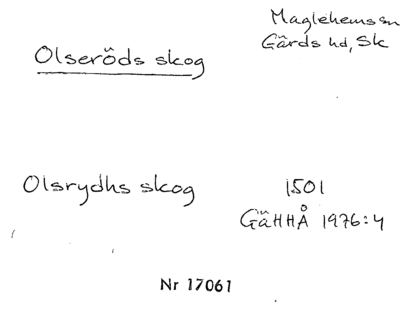 Maglehems sn
Olseröds skog
Gärds hd, Sk
Olsrydhs skog
1501
GäHHÅ 1976:4
Nr 17061